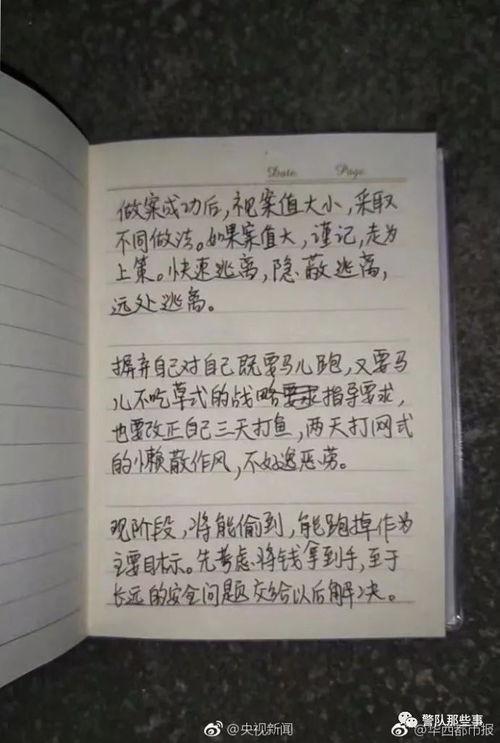 Date Page
做案成功后，视案值大小，采取
不同做法。如果案值大，谨记，走为
上策。快速逃离，隐蔽逃离，
远处逃离。
摒弃自己对自己既要马儿跑，又要马
儿不吃草式的战略要求指导要求，
也要改正自己三天打鱼，两天打网式
的懒散作风，不好逸恶劳。
现阶段，将能偷到，能跑掉作为
主要目标。先考虑将钱拿到手，至于
长远的安全问题交给以后解决。
@央视新闻
警队那些事
@华西都市报